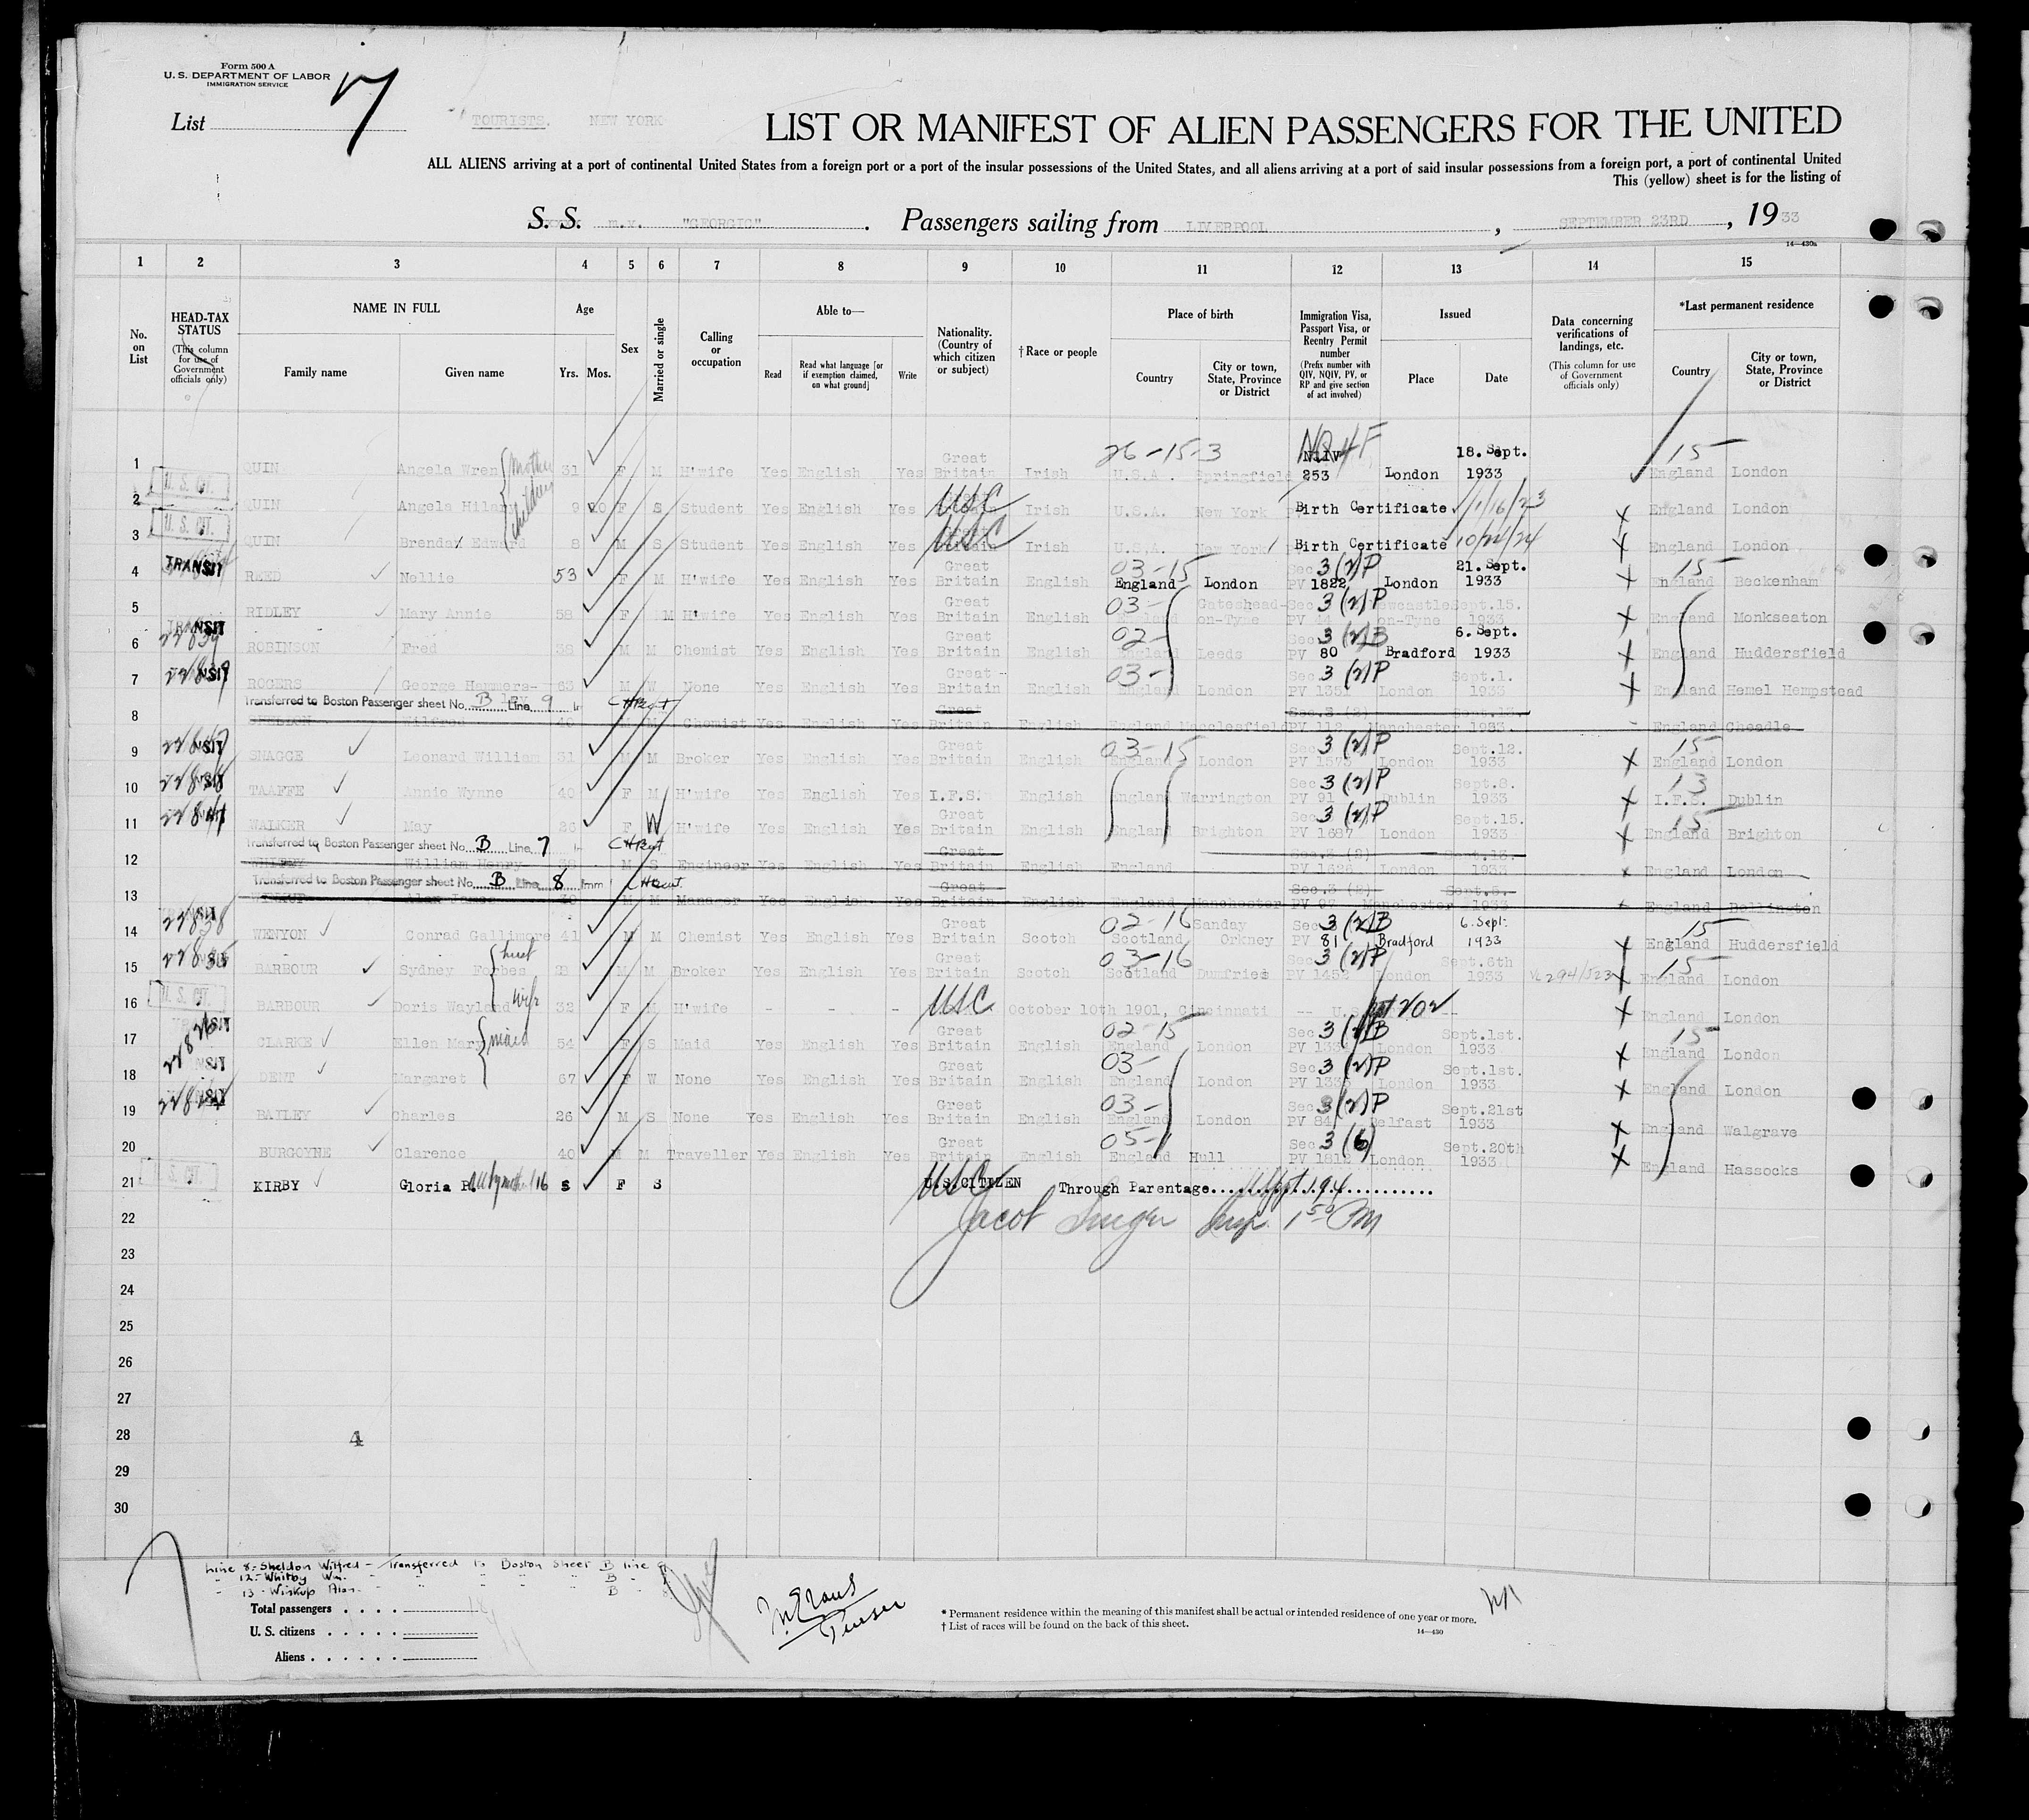 Form 500 A
U. S. DEPARTMENT OF LABOR
IMMIGRATION SERVICE
List 7
TOURISTS. NEW YORK
LIST OR MANIFEST OF ALIEN PASSENGERS FOR THE UNITED
ALL ALIENS arriving at a port of continental United States from a foreign port or a port of the insular possessions of the United States, and all aliens arriving at a port of said insular possessions from a foreign port, a port of continental United
This (yellow) sheet is for the listing of
S. S. m.v. "GEORGIC". Passengers sailing from LIVERPOOL, SEPTEMBER 23RD, 1933
14—430a
1 2 3 4 5 6 7 8 9 10 11 12 13 14 15
No. on List
HEAD-TAX STATUS (This column for use of Government officials only)
NAME IN FULL Family name Given name
Age Yrs. Mos.
Sex
Married or single
Calling or occupation
Able to— Read Read what language [or if exemption claimed, on what ground] Write
Nationality. (Country of which citizen or subject)
†Race or people
Place of birth Country City or town, State, Province or District
Immigration Visa, Passport Visa, or Reentry Permit number (Prefix number with QIV, NQIV, PV, or RP and give section of act involved)
Issued Place Date
Data concerning verifications of landings, etc. (This column for use of Government officials only)
*Last permanent residence Country City or town, State, Province or District
1 QUIN Angela Wren Mother 31 F M H'wife Yes English Yes Great Britain Irish 26-15-3 U.S.A. Springfield 253 London 18. Sept. 1933 15 England London
2 U. S. CIT. QUIN Angela children 9 F S Student Yes English Yes USC Irish U.S.A. New York Birth Certificate 1/16/23 England London
3 U. S. CIT. QUIN Brendan Edward 8 M S Student Yes English Yes USC Irish U.S.A. New York Birth Certificate 10/22/24 England London
4 TRANSIT REED Nellie 53 F M H'wife Yes English Yes Great Britain English 03-15 England London Sec 3 (2) P PV 1822 London 21. Sept. 1933 15 England Beckenham
5 RIDLEY Mary Annie 58 F M H'wife Yes English Yes Great Britain English 03- England Gateshead-on-Tyne Sec 3 (2) P PV 44 Newcastle-on-Tyne Sept.15. 1933 England Monkseaton
6 TRANSIT ROBINSON Fred 38 M M Chemist Yes English Yes Great Britain English 02- England Leeds Sec 3 (2) B PV 80 Bradford 6. Sept. 1933 England Huddersfield
7 ROGERS George Hammers- 63 M W None Yes English Yes Great Britain English 03- England London Sec 3 (2) P London Sept.1. 1933 England Hemel Hempstead
Transferred to Boston Passenger sheet No. B Line 9
8 Wilfred 40 M M Chemist Yes English Yes Great Britain English England Macclesfield Sec.3 (2) Manchester 1933. England Cheadle
9 SNAGGE Leonard William 31 M M Broker Yes English Yes Great Britain English 03-15 England London Sec 3 (2) P PV 1573 London Sept.12. 1933 15 England London
10 TAAFFE Annie Wynne 40 F M H'wife Yes English Yes I.F.S. English England Warrington Sec 3 (2) P PV 91 Dublin Sept.8. 1933 13 I.F.S. Dublin
11 WALKER May 26 F W H'wife Yes English Yes Great Britain English England Brighton Sec 3 (2) P PV 1687 London Sept.15. 1933 15 England Brighton
Transferred to Boston Passenger sheet No. B Line 7
12 William Henry M S Engineer Yes English Yes Great Britain English England Sec.3 (2) PV 1626 London 1933 England London
Transferred to Boston Passenger sheet No. B Line 8 Imm
13 Alan James M M Manager Yes English Yes Great Britain English England Manchester Sec.3 (2) PV 97 Manchester Sept.5. 1933 England Bollington
14 22838 WENYON Conrad Gallimore 41 M M Chemist Yes English Yes Great Britain Scotch 02-16 Scotland Sanday Orkney Sec 3 (2) B PV 81 Bradford 6. Sept. 1933 15 England Huddersfield
15 BARBOUR Sydney Forbes M M Broker Yes English Yes Great Britain Scotch 03-16 Scotland Dumfries Sec 3 (2) P PV 1452 London Sept.6th 1933 15 England London
16 U. S. CIT. BARBOUR Doris Wayland wife 32 F M H'wife - - - USC October 10th 1901, Cincinnati -- England London
17 CLARKE Ellen Mary maid 54 F S Maid Yes English Yes Great Britain English 02-15 England London Sec 3 (2) B London Sept.1st. 1933 15 England London
18 DENT Margaret 67 F W None Yes English Yes Great Britain English 03- England London Sec 3 (2) P London Sept.1st. 1933 England London
19 BAILEY Charles 26 M S None Yes English Yes Great Britain English 03- England London Sec 3 (2) P PV 84 Belfast Sept.21st 1933 England Walgrave
20 BURGOYNE Clarence 40 M M Traveller Yes English Yes Great Britain English 05- England Hull Sec 3 (6) PV 1812 London Sept.20th 1933 England Hassocks
21 U. S. CIT. KIRBY Gloria R. S F S USC U.S.CITIZEN Through Parentage
22 Jacob Insp. 1 50 PM
23
24
25
26
27
28 4
29
30
Line 8- Sheldon Wilfred - Transferred to Boston Sheet B line 9
" 12- Whitby Wm. " " " " B " 7
" 13- Winkup Alan. " " " " B " 8
Total passengers
U. S. citizens
Aliens
Purser
* Permanent residence within the meaning of this manifest shall be actual or intended residence of one year or more.
† List of races will be found on the back of this sheet.
14—430